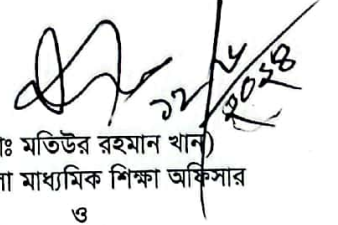 ১২
২০২৪
াঃ মতিউর রহমান খান)
া মাধ্যমিক শিক্ষা অফিসার
ও